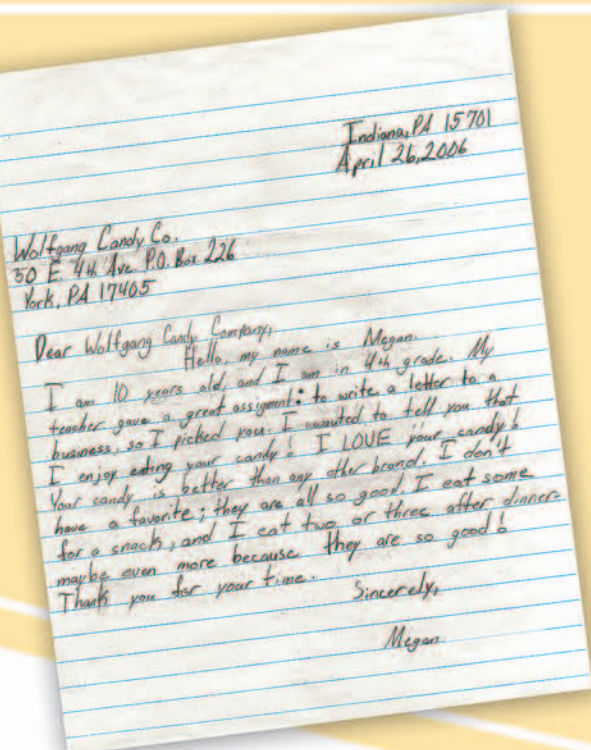 Indiana, PA 15701
April 26, 2006
Wolfgang Candy Co.
50 E. 4th Ave. P.O. Box 226
York, PA 17405
Dear Wolfgang Candy Company,
Hello, my name is Megan.
I am 10 years old, and I am in 4th grade. My
teacher gave a great assigment: to write a letter to a
business, so I picked you. I wanted to tell you that
I enjoy eating your candy! I LOVE your candy!
Your candy is better than any other brand. I don't
have a favorite; they are all so good. I eat some
for a snack, and I eat two or three after dinner-
maybe even more because they are so good!
Thank you for your time.
Sincerely,
Megan